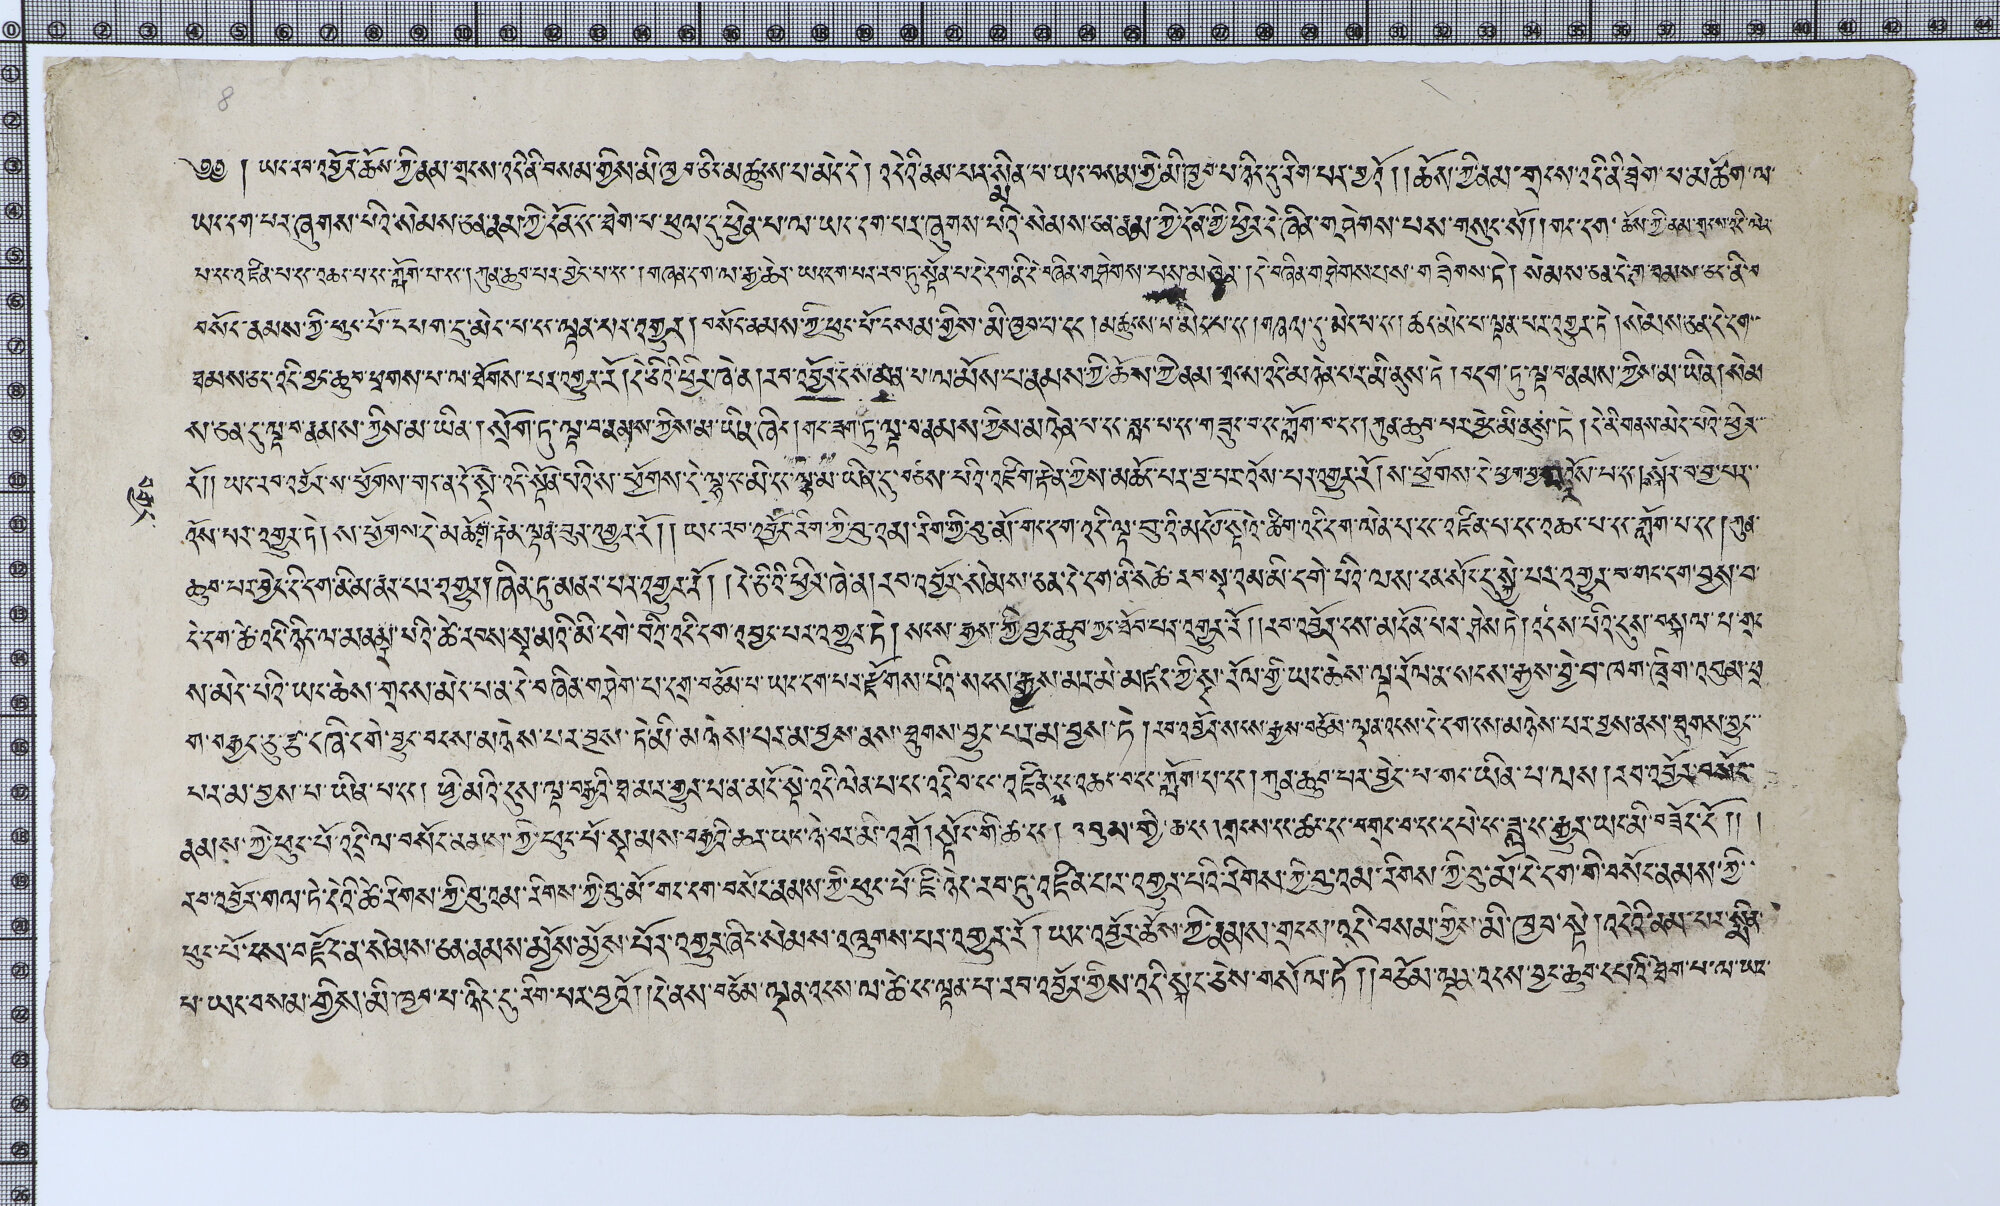 8
༄༅། ཡང་རབ་འབྱོར་ཆོས་ཀྱི་རྣམ་གྲངས་འདི་ནི་བསམ་གྱིས་མི་ཁྱབ་ཅིང་མཚུངས་པ་མེད་དེ། འདིའི་རྣམ་པར་སྨིན་པ་ཡང་བསམ་གྱི་མི་ཁྱབ་པ་ཉིད་དུ་རིག་པར་བྱའོ།།ཆོས་ཀྱི་རྣམ་གྲངས་འདི་ནི་ཐེག་པ་མཆོག་ལ་
ཡང་དག་པར་ཞུགས་པའི་སེམས་ཅན་རྣམ་ཀྱི་དོན་དང་ཐེག་པ་ཕུལ་དུ་ཕྱིན་པ་ལ་ཡང་དག་པར་ཞུགས་པའི་སེམས་ཅན་རྣམ་ཀྱི་དོན་གྱི་ཕྱིར་དེ་བཞིན་གཤེགས་པས་གསུང་སོ།།གང་དག་ཆོས་ཀྱི་རྣམ་གྲངས་འདི་ལེན་
པ་དང་འཛིན་པ་དང་འཆང་པ་དང་ཀློག་པ་དང་།ཀུན་ཆུབ་པར་བྱེད་པ་དང་།གཞན་དག་ལ་རྒྱ་ཆེར་ཡང་དག་པར་རབ་ཏུ་སྟོན་པ་དེ་དག་ནི་དེ་བཞིན་གཤེགས་པས་མཁྱེན།དེ་བཞིན་གཤེགས་པས་གཟིགས་ཏེ།སེམས་ཅན་དེ་དག་ཐམས་ཅད་ནི་བ
བསོད་ནམས་ཀྱི་ཕུང་པོ་དཔག་དུ་མེད་པ་དང་ལྡན་པར་འགྱུར།བསོད་ནམས་ཀྱི་ཕུང་པོ་བསམ་གྱིས་མི་ཁྱབ་པ་དང་།མཚུངས་པ་མེད་པ་དང་།གཞལ་དུ་མེད་པ་དང་།ཚད་མེད་པ་ལྡན་པར་འགྱུར་ཏེ།སེམས་ཅན་དེ་དག་
ཐམས་ཅད་འདི་བྱང་ཆུབ་ཕྲགས་པ་ལ་ཐོགས་པར་འགྱུར་རོ།དེ་ཅིའི་ཕྱིར་ཞེ་ན།རབ་འབྱོར་དམན་པ་ལ་མོས་པ་རྣམས་ཀྱི་ཆོས་ཀྱི་རྣམ་གྲངས་འདི་མཉེན་པར་མི་ནུས་ཏེ།བདག་ཏུ་ལྟ་བ་རྣམས་ཀྱིས་མ་ཡིན།སེམ
ས་ཅན་དུ་ལྟ་བ་རྣམས་ཀྱིས་མ་ཡིན།སྲོག་ཏུ་ལྟ་བ་རྣམས་ཀྱིས་མ་ཡིན་ཞིང་།གང་ཟག་ཏུ་ལྟ་བ་རྣམས་ཀྱིས་མཉེན་པ་དང་བླང་པ་དང་གཟུང་བ་དང་ཀློག་པ་དང་།ཀུན་ཆུབ་པར་བྱེད་མི་ནུས་ཏེ།དེ་ནི་གནས་མེད་པའི་ཕྱིར་
རོ།།ཡང་རབ་འབྱོར་ས་ཕྱོགས་གང་ན་དོ་སྡེ་འདི་སྟོན་པའི་ས་ཕྱོགས་དེ་ལྷ་དང་མི་དང་ལྷ་མ་ཡིན་དུ་བཅས་པའི་འཇིག་རྟེན་ཀྱིས་མཆོད་པར་བྱ་པར་འོས་པར་འགྱུར་རོ།ས་ཕྱོགས་དེ་ཕྱག་བྱ་བར་འོས་པ་དང་།སྐོར་བ་བྱ་པར་
འོས་པར་འགྱུར་ཏེ།ས་ཕྱོགས་དེ་མཆོད་རྟེན་ལྟ་བུར་འགྱུར་རོ།།ཡང་རབ་འབྱོར་རིག་ཀྱི་བུ་འམ།རིག་ཀྱི་བུ་མོ་གང་དག་འདི་ལྟ་བུ་འི་མདོ་སྡེའི་ཚིག་འདི་དག་ལེན་པ་དང་འཛིན་པ་དང་འཆང་པ་དང་ཀློག་པ་དང་།ཀུན་
ཆུབ་པར་བྱེད་དེ་དག་ནི་མནར་པར་འགྱུར།ཤིན་ཏུ་མནར་པར་འགྱུར་རོ། །དེ་ཅིའི་ཕྱིར་ཞེ་ན།རབ་འབྱོར་སེམས་ཅན་དེ་དག་ནི་ཚེ་རབས་སྔ་འམ་མི་དགེ་པའི་ལས་ངན་སོང་དུ་སྐྱེ་པར་འགྱུར་བ་གང་དག་བྱས་བ་
དེ་དག་ཚེ་འདི་ཉིད་ལ་མནར་པའི་ཚེ་རབས་སྔ་མའི་མི་དགེ་བའི་འདི་དག་འབྱང་པར་འགྱུར་ཏེ།སངས་རྒྱས་ཀྱི་བྱང་ཆུབ་ཀྱང་ཐོབ་པར་འགྱུར་རོ།།རབ་འབྱོར་ངས་མངོན་པར་ཤེས་ཏེ།འདས་པའི་དུས་བསྐལ་པ་གྲང
ས་མེད་པའི་ཡང་ཆེས་གྲངས་མེད་པ་ན་དེ་བཞིན་གཤེག་པ་དགྲ་བཅོམ་པ་ཡང་དག་པར་རྫོགས་པའི་སངས་རྒྱས་མར་མེ་མཛད་ཀྱི་སྔ་རོལ་གྱི་ཡང་ཆེས་སྔ་རོལ་ན་སངས་རྒྱས་བྱེ་བ་ཁྲག་ཁྲིག་འབུམ་ཕྲ
ག་བརྒྱད་ཅུ་རྩ་བཞི་དགེ་བྱུང་བ་ངས་མཉེས་པར་བྱས་ཏེ་མི་མཉེས་པར་མ་བྱས་ནས་ཐུགས་བྱུང་པར་མ་བྱས་ཏེ།རབ་འབྱོར་སངས་རྒྱས་བཅོམ་ལྡན་འདས་དེ་དག་ངས་མཉེས་པར་བྱས་ནས་ཐུགས་བྱུང་
པར་མ་བྱས་པ་ཡིན་པ་དང་།ཕྱི་མའི་དུས་ལྔ་བརྒྱའི་ཐ་མར་གྱུར་པ་ན་མདོ་སྡེ་འདི་ལེན་པ་དང་འདྲི་བ་དང་འཛིན་པ་དང་འཆང་བ་དང་ཀློག་པ་དང་།ཀུན་ཆུབ་པར་བྱེད་པ་གང་ཡིན་པ་ལས།རབ་འབྱོར་བསོད་
རྣམས་ཀྱི་ཕུང་པོ་འདི་ལ་བསོད་ནམས་ཀྱི་ཕུང་པོ་སྔ་མས་བརྒྱའི་ཆར་ཡང་ཉེ་བར་མི་འགྲོ།སྟོང་གི་ཆ་དང་།འབུམ་གྱི་ཆ་དང་།གྲངས་དང་ཆར་དང་བགྲང་བ་དང་དཔེ་དང་ཟླ་དང་རྒྱུར་ཡང་མི་བཟོད་དོ།། །
རབ་འབྱོར་གལ་ཏེ་དེའི་ཚེ་རིགས་ཀྱི་བུ་འམ་རིགས་ཀྱི་བུ་མོ་གང་དག་བསོད་རྣམས་ཀྱི་ཕུང་པོ་ཇི་ཉེད་རབ་ཏུ་འཛིན་པར་འགྱུར་པའི་རིགས་ཀྱི་བུ་འམ་རིགས་ཀྱི་བུ་མོ་དེ་དག་གི་བསོད་ནམས་ཀྱི་
ཕུང་པོ་ངས་བརྗོད་ན་སེམས་ཅན་རྣམས་མྱོས་མྱོས་པོར་འགྱུར་ཞིང་སེམས་འཁྲུགས་པར་འགྱུར་རོ། ཡང་འབྱོར་ཆོས་ཀྱི་རྣམས་གྲངས་འདི་བསམ་གྱིས་མི་ཁྱབ་སྟེ།འདིའི་རྣམ་པར་སྨིན་
པ་ཡང་བསམ་གྱིས་མི་ཁྱབ་པ་ཉིད་དུ་རིག་པར་བྱའོ།།དེ་ནས་བཅོམ་ལྡན་འདས་ལ་ཚེ་དང་ལྡན་པ་རབ་འབྱོར་གྱིས་འདི་སྐད་ཅེས་གསོལ་ཏོ།།བཅོམ་ལྡན་འདས་བྱང་ཆུབ་དཔའི་ཐེག་པ་ལ་ཡང་